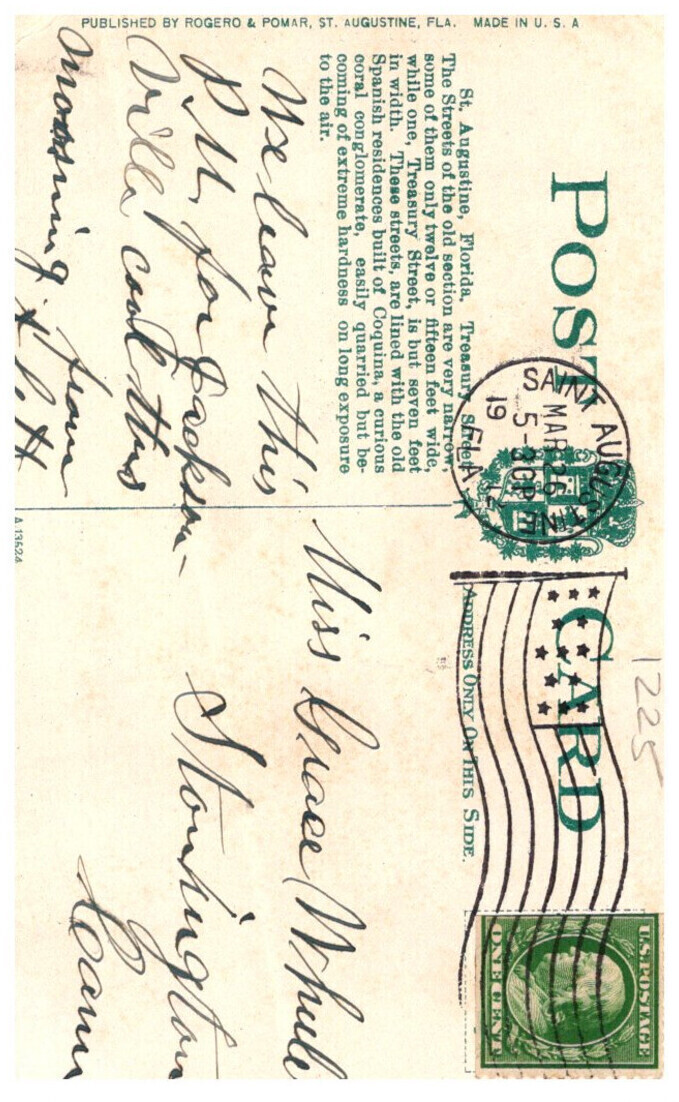 PUBLISHED BY ROGERO & POMAR, ST. AUGUSTINE, FLA. MADE IN U. S. A
POST CARD
1225
SAINT AUGUSTINE
MAR 26
5-30P
19
FLA.
U.S. POSTAGE
ONE CENT
ADDRESS ONLY ON THIS SIDE.
St. Augustine, Florida, Treasury Street.
The Streets of the old section are very narrow,
some of them only twelve or fifteen feet wide,
while one, Treasury Street, is but seven feet
in width. These streets, are lined with the old
Spanish residences built of Coquina, a curious
coral conglomerate, easily quarried but be-
coming of extreme hardness on long exposure
to the air.
We leave this
P.M. for Jackson-
ville cool this
morning from
A 13624
Miss Grace
Stonington
Conn